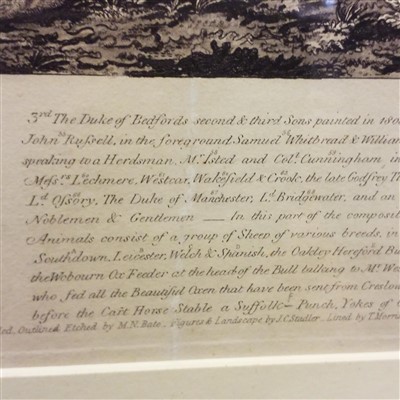 3rd The Duke of Bedfords second & third Sons painted in 180
John Russell, in the foreground Samuel Whitbread & William
speaking to a Herdsman. Mr. Isted and Col. Cunningham, in
Messrs. Lechmere, Westcar, Wakefield & Crook, the late Godfrey Th
Ld. Ossory, The Duke of Manchester, Ld. Bridgwater, and an
Noblemen & Gentlemen — In this part of the composit
Animals consist of a group of Sheep of various breeds, in
Southdown, Leicester, Welch & Spanish, the Oakley Hereford Bu
the Wobourn Ox Feeder at the head of the Bull talking to Mr. We
who fed all the Beautiful Oxen that have been sent from Creslow
before the Cart Horse Stable a Suffolk Punch, Yokes of
led, Outlined & Etched by M.N. Bate, Figures & Landscape by J.C. Stadler, Lined by T. Morris